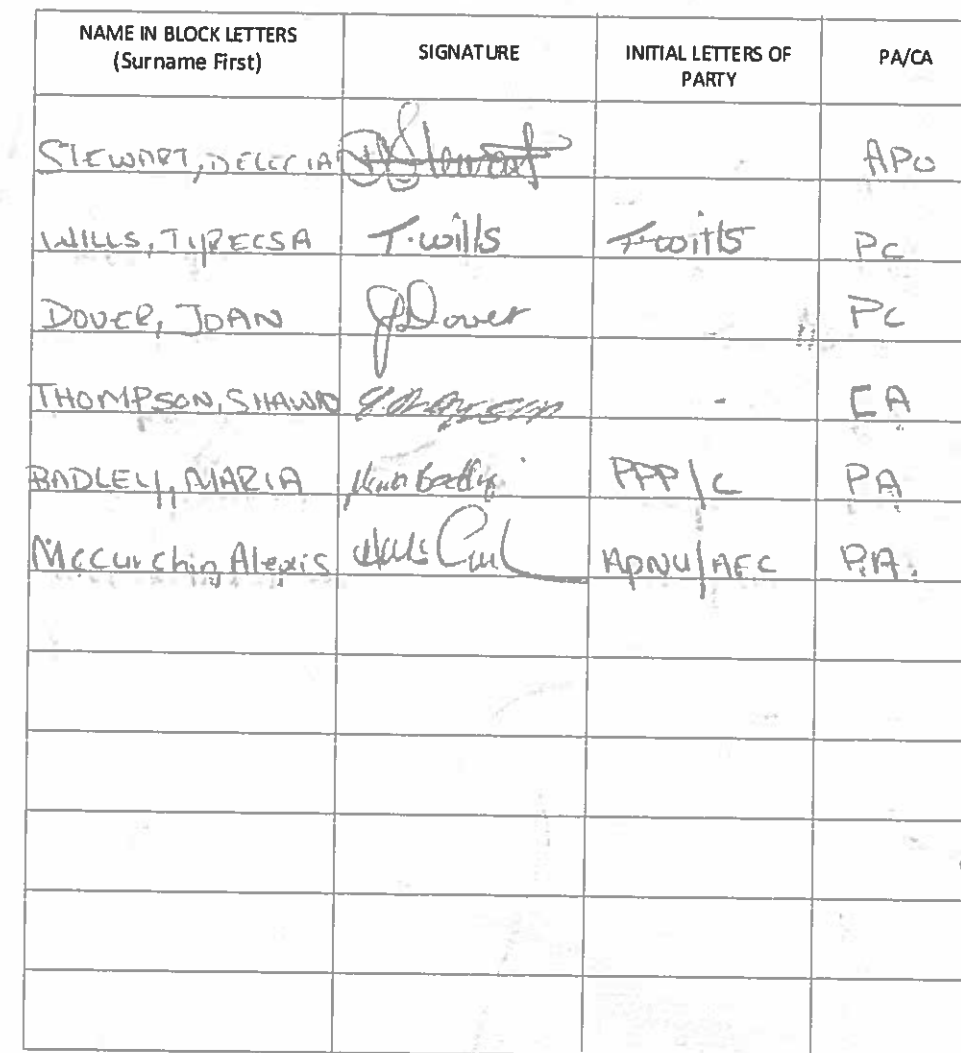 NAME IN BLOCK LETTERS (Surname First) SIGNATURE INITIAL LETTERS OF PARTY PA/CA
STEWART, DELECIA D Stewart APO
WILLS, TIRECSA T. wills T. wills PC
DOVER, JOAN J Dover PC
THOMPSON, SHAWN - CA
BADLEY, MARIA PPP/C PA
McCurchin Alexis APNU/AFC P.A.